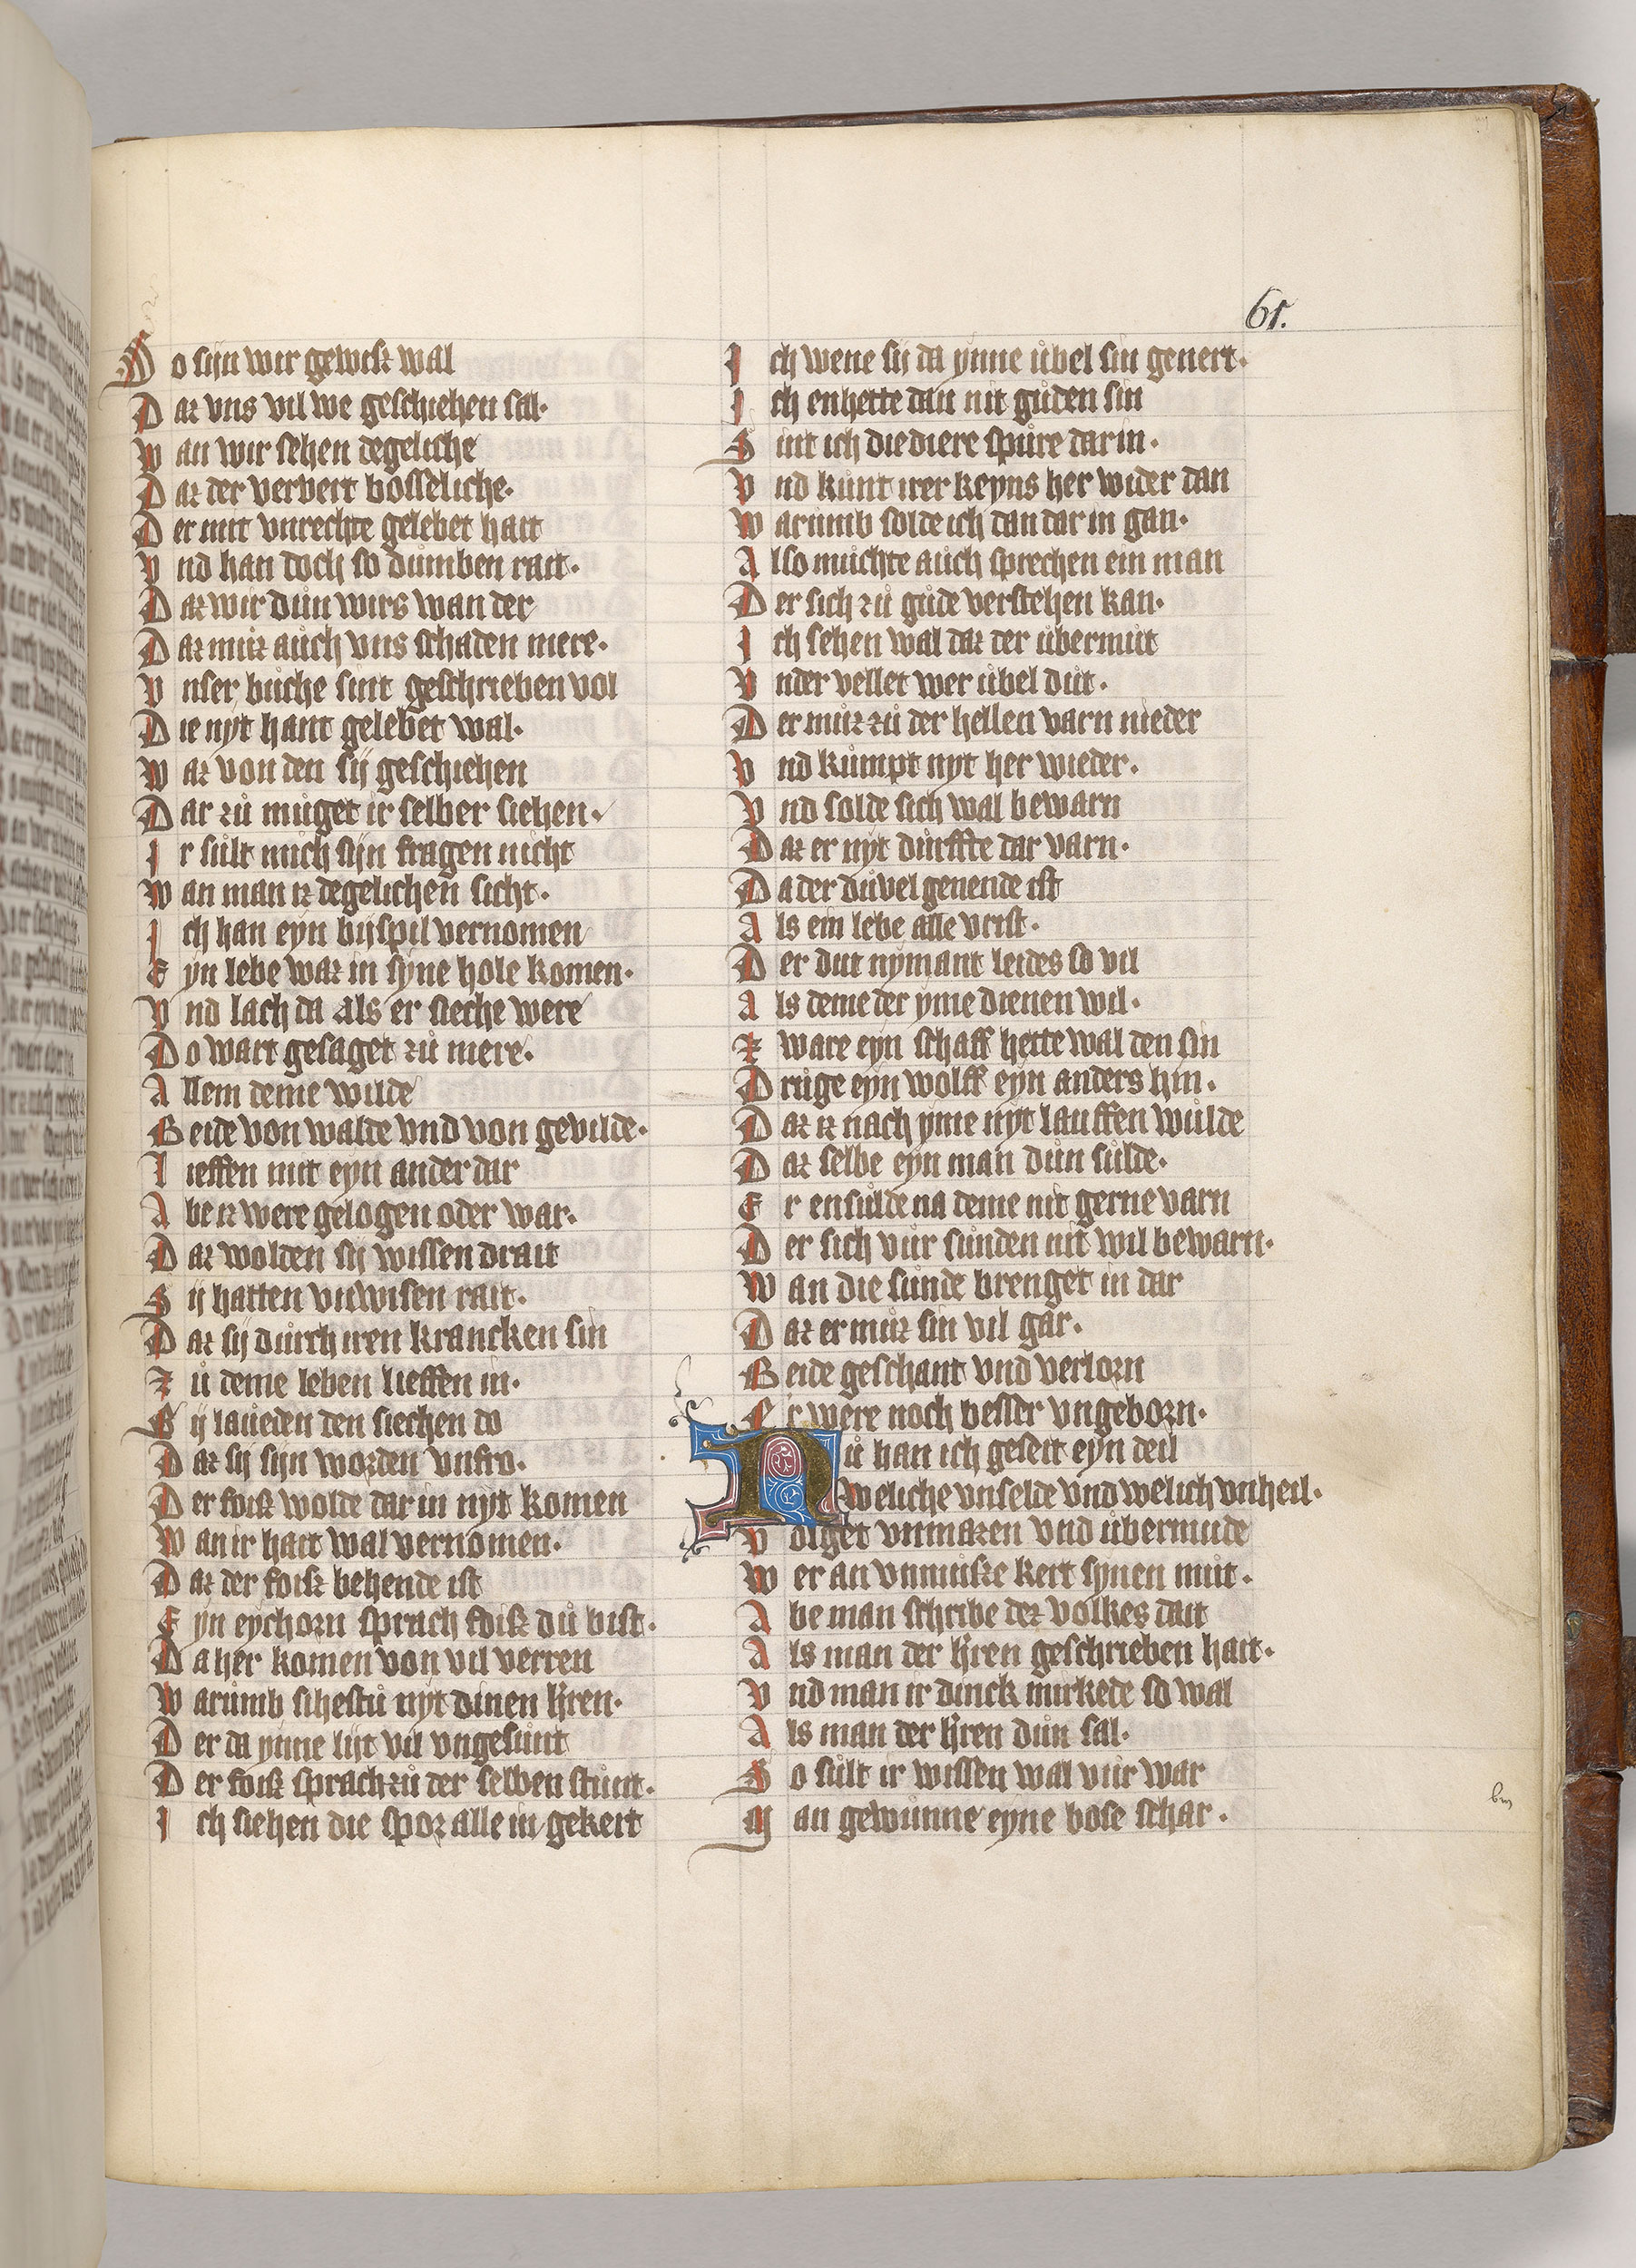 61.
So sijn wir gewisz wal
Daz vns vil we geschiehen sal·
wan wir sehen degeliche
Daz der ververt bosseliche·
Der mit vnrechte gelebet hait
Vnd han doch so důmben rait·
Daz wir důn wirs wan der
Daz můz aůch vns schaden mere·
Vnser bůche sint geschrieben vol
Die nyt hant gelebet wal·
waz von den sij geschiehen
Dar zů můget ir selber siehen·
Ir sůlt mich sijn fragen nicht
wan man iz degelichen sicht·
Ich han eyn bijspil vernomen
Eyn lebe waz in syne hole komen·
Vnd lach da als er sieche were
Do wart gesaget zů mere·
Allem deme wilde
Beide von walde vnd von gevilde·
lieffen mit eyn ander dar
Abe iz were gelogen oder war·
Daz wolden sij wissen drait
Sij hatten vnwisen rait·
Daz sij důrch iren krancken sin
Zů deme leben lieffen in·
Sij laůeden den siechen do
Daz sij sijn worden vnfro·
Der foisz wolde dar in nyt komen
Wan ir hait wal vernomen·
Daz der foisz behende ist
Eyn eychorn sprach foisz dů bist·
Da her komen von vil verren
Warůmb sihestů nyt dinen h'ren·
Der da ynne lijt vil vngesůnt
Der foisz sprach zů der selben stůnt·
Ich siehen die spor alle in gekeit
Ich wene sij da ynne ůbel sin genert·
Ich enhette dan nit gůden sin
Sint ich die diere spůre dar in·
Vnd kůnt irer keyns her wider dan
Warůmb solde ich dan dar in gan·
Also můchte aůch sprechen ein man
Der sich zů gůde verstehen kan·
Ich sehen wal daz der ůbermůt
Vnder vellet wer ůbel důt·
Der můz zů der hellen varn nieder
Vnd kůmpt nyt her wieder·
Vnd solde sich wal bewarn
Daz er nyt důrffte dar varn·
Da der důvel genende ist
Als ein lebe alle vrist·
Der dut nymant leides so vil
Als deme der yme dienen wil·
Zware eyn schaff hette wal den sin
Drůge eyn wolff eyn anders hin·
Daz iz nach yme nyt lauffen wůlde
Daz selbe eyn man důn sůlde·
Er ensůlde na deme nit gerne varn
Der sich vůr sůnden nit wil bewarn·
Wan die sůnde brenget in dar
Daz er můz sin vil gar·
Beide geschant vnd verlorn
Er were noch besser vngeborn·
Nů han ich geseit eyn deil
weliche vnselde vnd welich vnheil·
Volget vnmazen vnd ůbermůde
Wer an vnmůsze kert synen můt·
Abe man schribe dez volkes dait
Als man der h'ren geschrieben hait·
Vnd man ir dinck mirkede so wal
Als man der h'ren důn sal·
So sůlt ir wissen wal vůr war
Man gewůnne eyne bose schar·